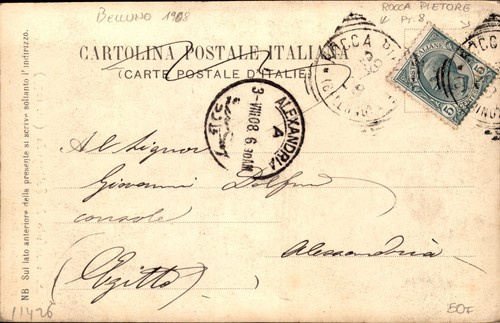 BELLUNO 1908
ROCCA PIETORE
Pt. 8
CARTOLINA POSTALE ITALIANA
(CARTE POSTALE D'ITALIE)
ROCCA
ALEXANDRIA
3-VIII 08 6 30 AM
A
Al Signor
Giovanni Dolfin
console
Alessandria
(Egitto)
NB Sul lato anteriore della presente si scrive soltanto l'indirizzo.
11426
50